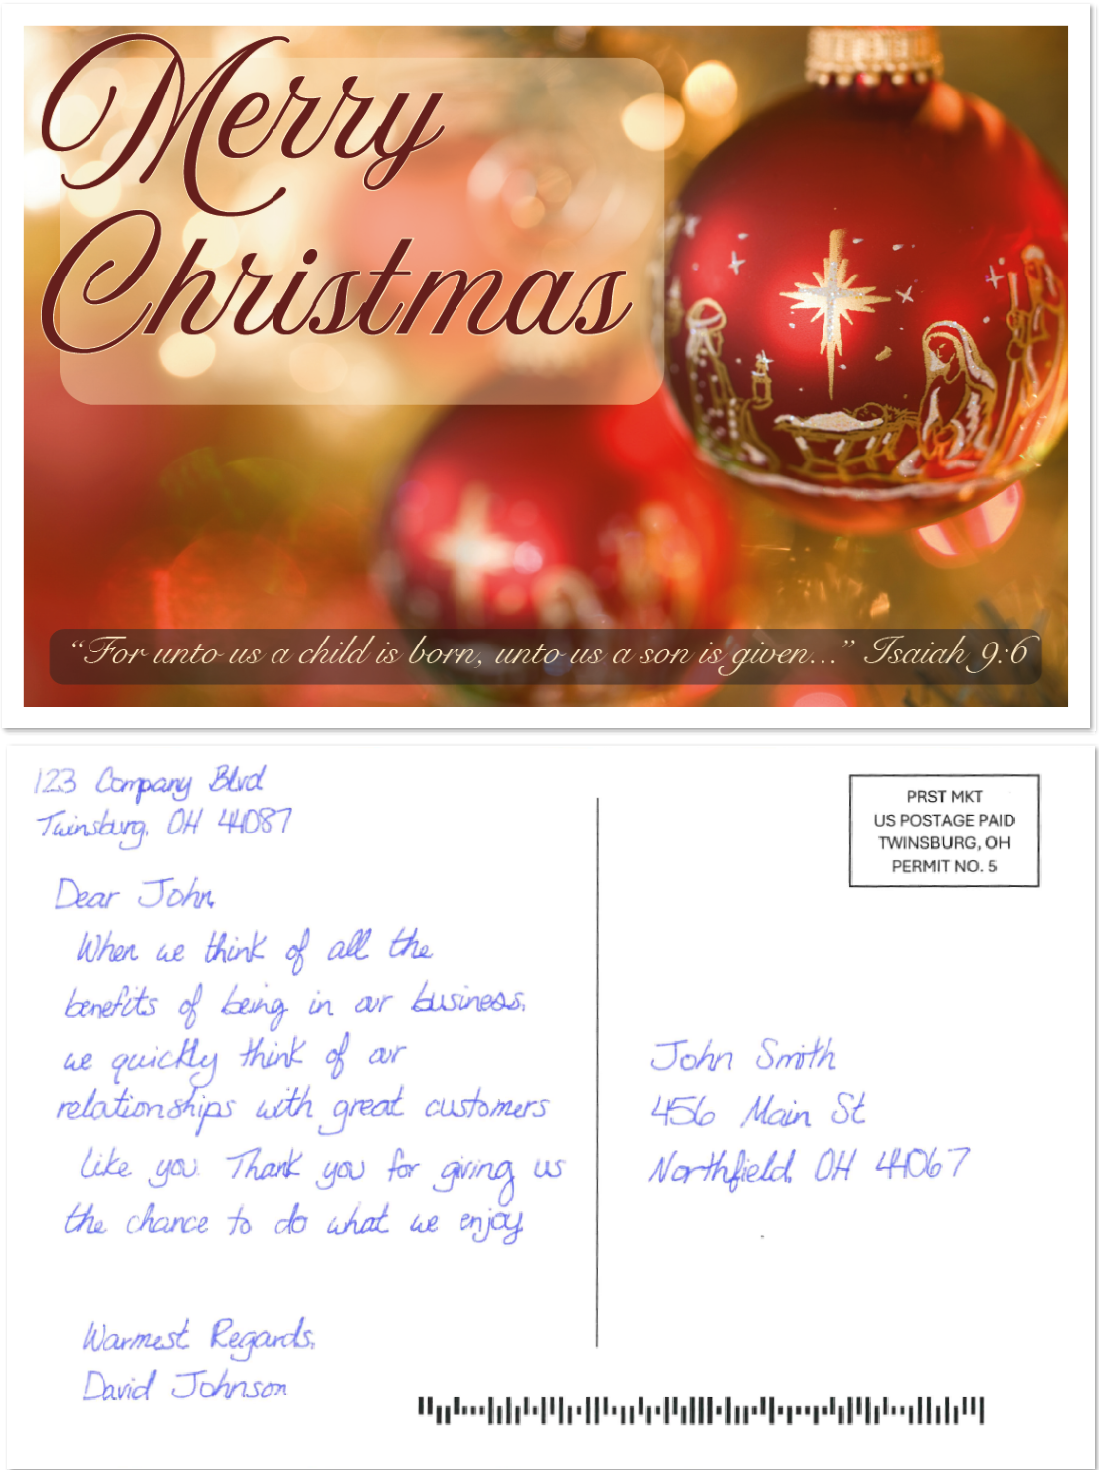 Merry
Christmas
“For unto us a child is born, unto us a son is given...” Isaiah 9:6
123 Company Blvd
Twinsburg, OH 44087
PRST MKT
US POSTAGE PAID
TWINSBURG, OH
PERMIT NO. 5
Dear John,
When we think of all the
benefits of being in our business,
we quickly think of our
relationships with great customers
like you. Thank you for giving us
the chance to do what we enjoy.
Warmest Regards,
David Johnson
John Smith
456 Main St
Northfield, OH 44067